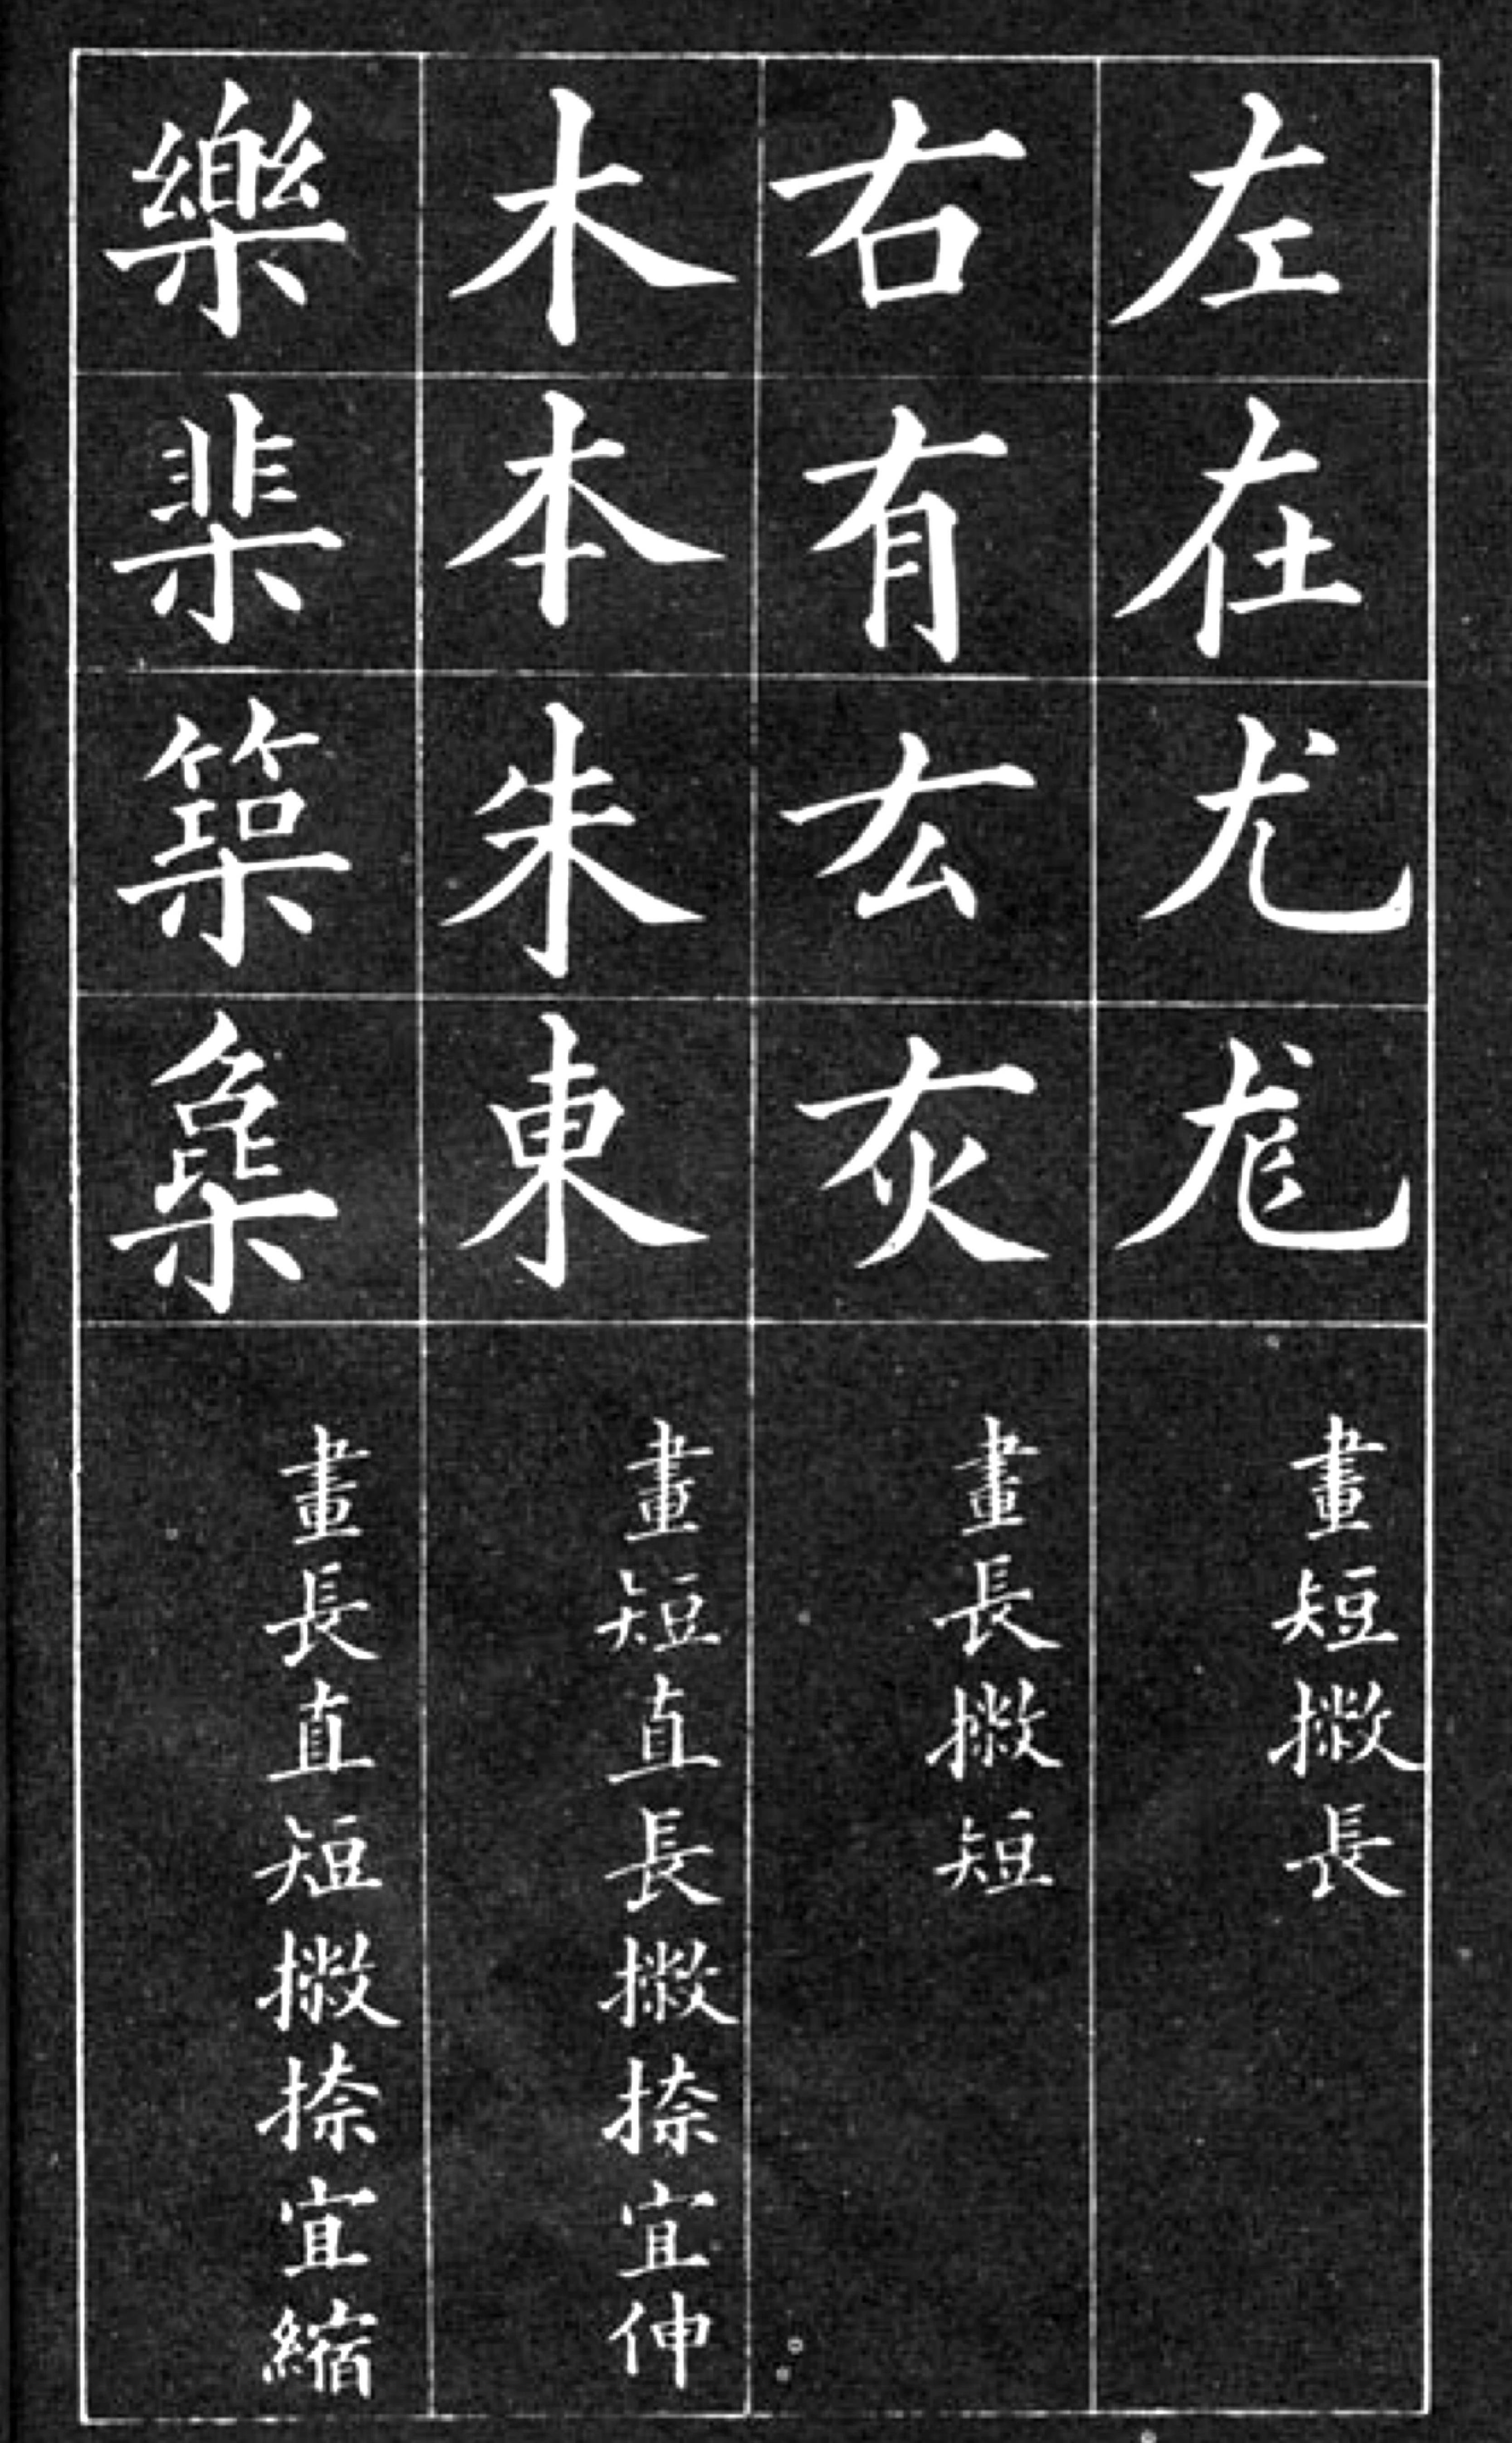 左在尤尨 畫短撇長
右有厷灰 畫長撇短
木本朱東 畫短直長撇捺宜伸
樂棐築 畫長直短撇捺宜縮